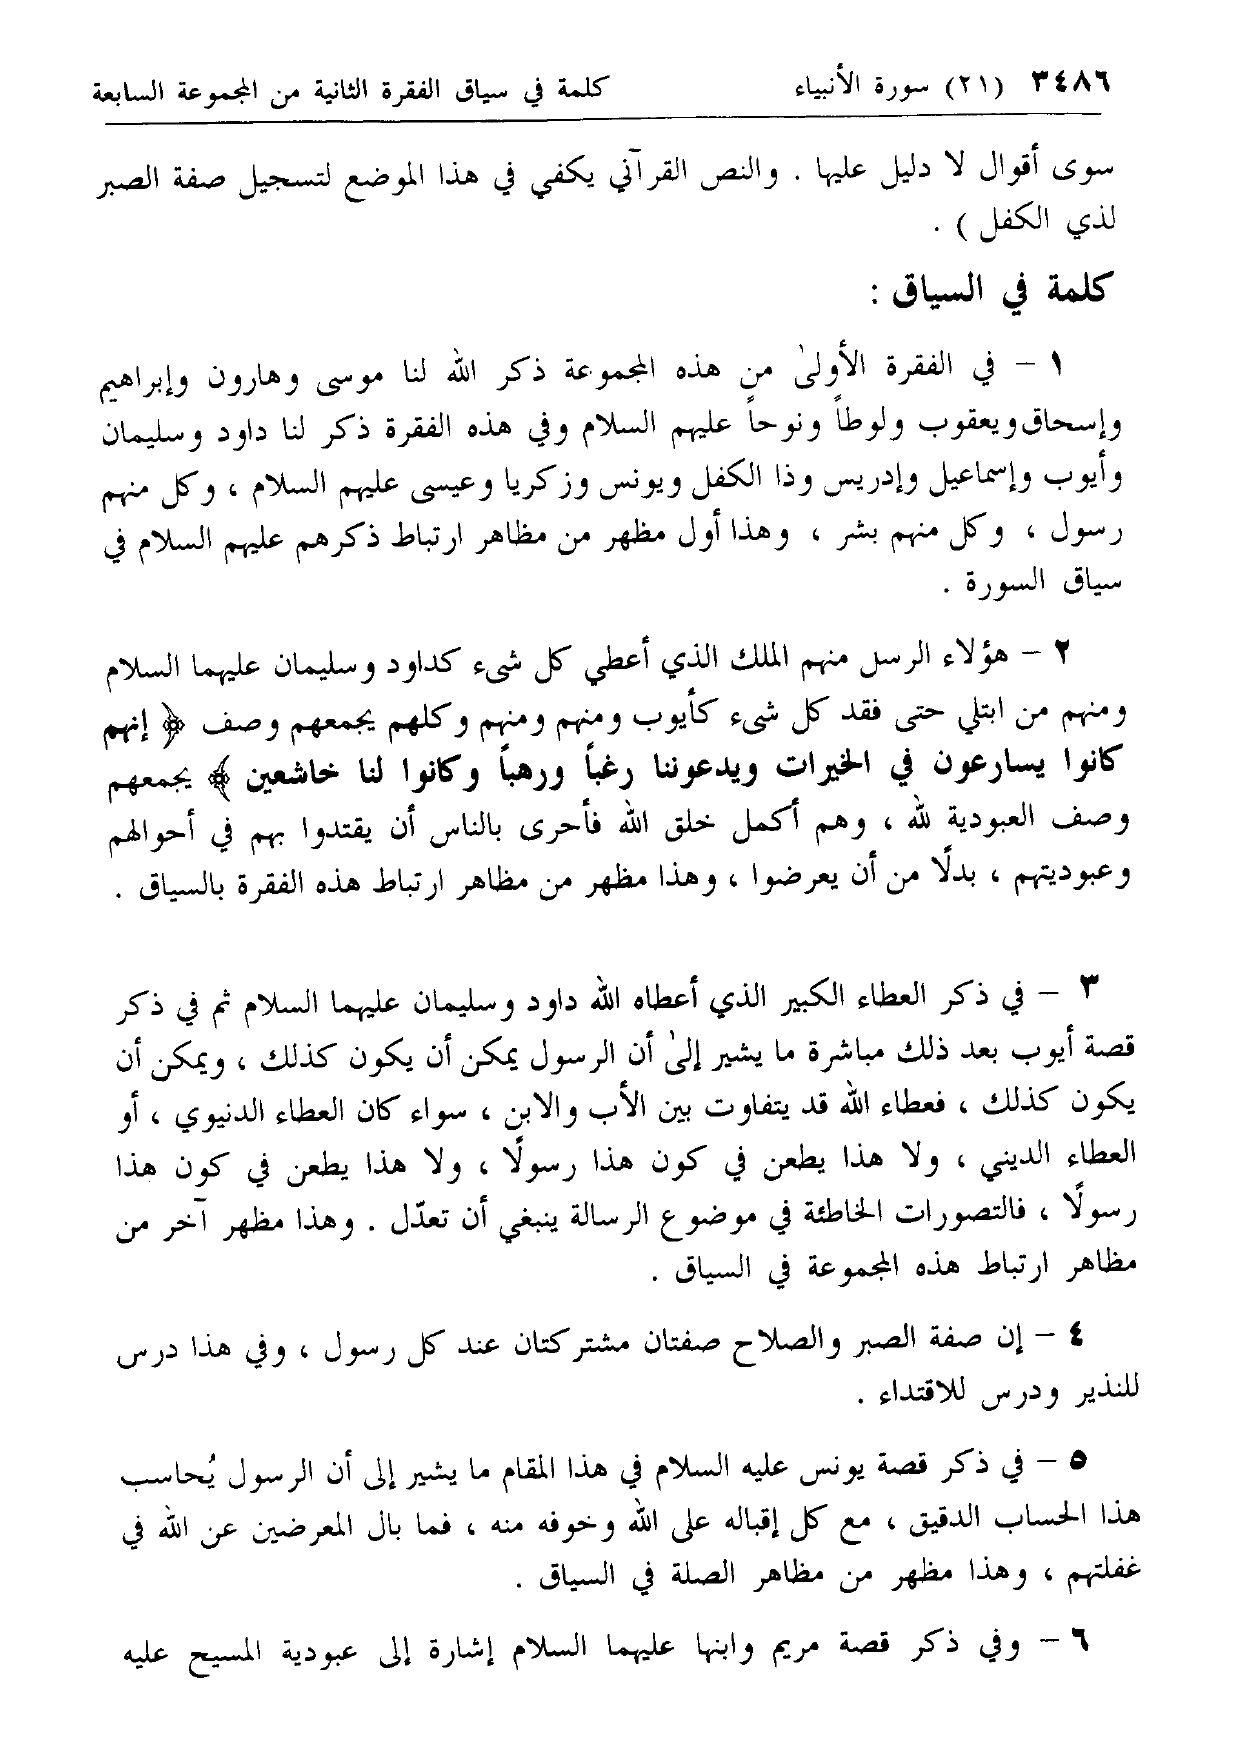 ٣٤٨٦ (٢١) سورة الأنبياء كلمة في سياق الفقرة الثانية من المجموعة السابعة
سوى أقوال لا دليل عليها . والنص القرآني يكفي في هذا الموضع لتسجيل صفة الصبر
لذي الكفل ) .
كلمة في السياق :
١ – في الفقرة الأولىٰ من هذه المجموعة ذكر الله لنا موسى وهارون وإبراهيم
وإسحاق ويعقوب ولوطاً ونوحاً عليهم السلام وفي هذه الفقرة ذكر لنا داود وسليمان
وأيوب وإسماعيل وإدريس وذا الكفل ويونس وزكريا وعيسى عليهم السلام ، وكل منهم
رسول ، وكل منهم بشر ، وهذا أول مظهر من مظاهر ارتباط ذكرهم عليهم السلام في
سياق السورة .
٢ – هؤلاء الرسل منهم الملك الذي أعطي كل شىء كداود وسليمان عليهما السلام
ومنهم من ابتلي حتى فقد كل شىء كأيوب ومنهم ومنهم وكلهم يجمعهم وصف ﴿ إنهم
كانوا يسارعون في الخيرات ويدعوننا رغباً ورهباً وكانوا لنا خاشعين ﴾ يجمعهم
وصف العبودية لله ، وهم أكمل خلق الله فأحرى بالناس أن يقتدوا بهم في أحوالهم
وعبوديتهم ، بدلًا من أن يعرضوا ، وهذا مظهر من مظاهر ارتباط هذه الفقرة بالسياق .
٣ – في ذكر العطاء الكبير الذي أعطاه الله داود وسليمان عليهما السلام ثم في ذكر
قصة أيوب بعد ذلك مباشرة ما يشير إلىٰ أن الرسول يمكن أن يكون كذلك ، ويمكن أن
يكون كذلك ، فعطاء الله قد يتفاوت بين الأب والابن ، سواء كان العطاء الدنيوي ، أو
العطاء الديني ، ولا هذا يطعن في كون هذا رسولًا ، ولا هذا يطعن في كون هذا
رسولًا ، فالتصورات الخاطئة في موضوع الرسالة ينبغي أن تعدّل . وهذا مظهر آخر من
مظاهر ارتباط هذه المجموعة في السياق .
٤ – إن صفة الصبر والصلاح صفتان مشتركتان عند كل رسول ، وفي هذا درس
للنذير ودرس للاقتداء .
٥ – في ذكر قصة يونس عليه السلام في هذا المقام ما يشير إلى أن الرسول يُحاسب
هذا الحساب الدقيق ، مع كل إقباله على الله وخوفه منه ، فما بال المعرضين عن الله في
غفلتهم ، وهذا مظهر من مظاهر الصلة في السياق .
٦ – وفي ذكر قصة مريم وابنها عليهما السلام إشارة إلى عبودية المسيح عليه